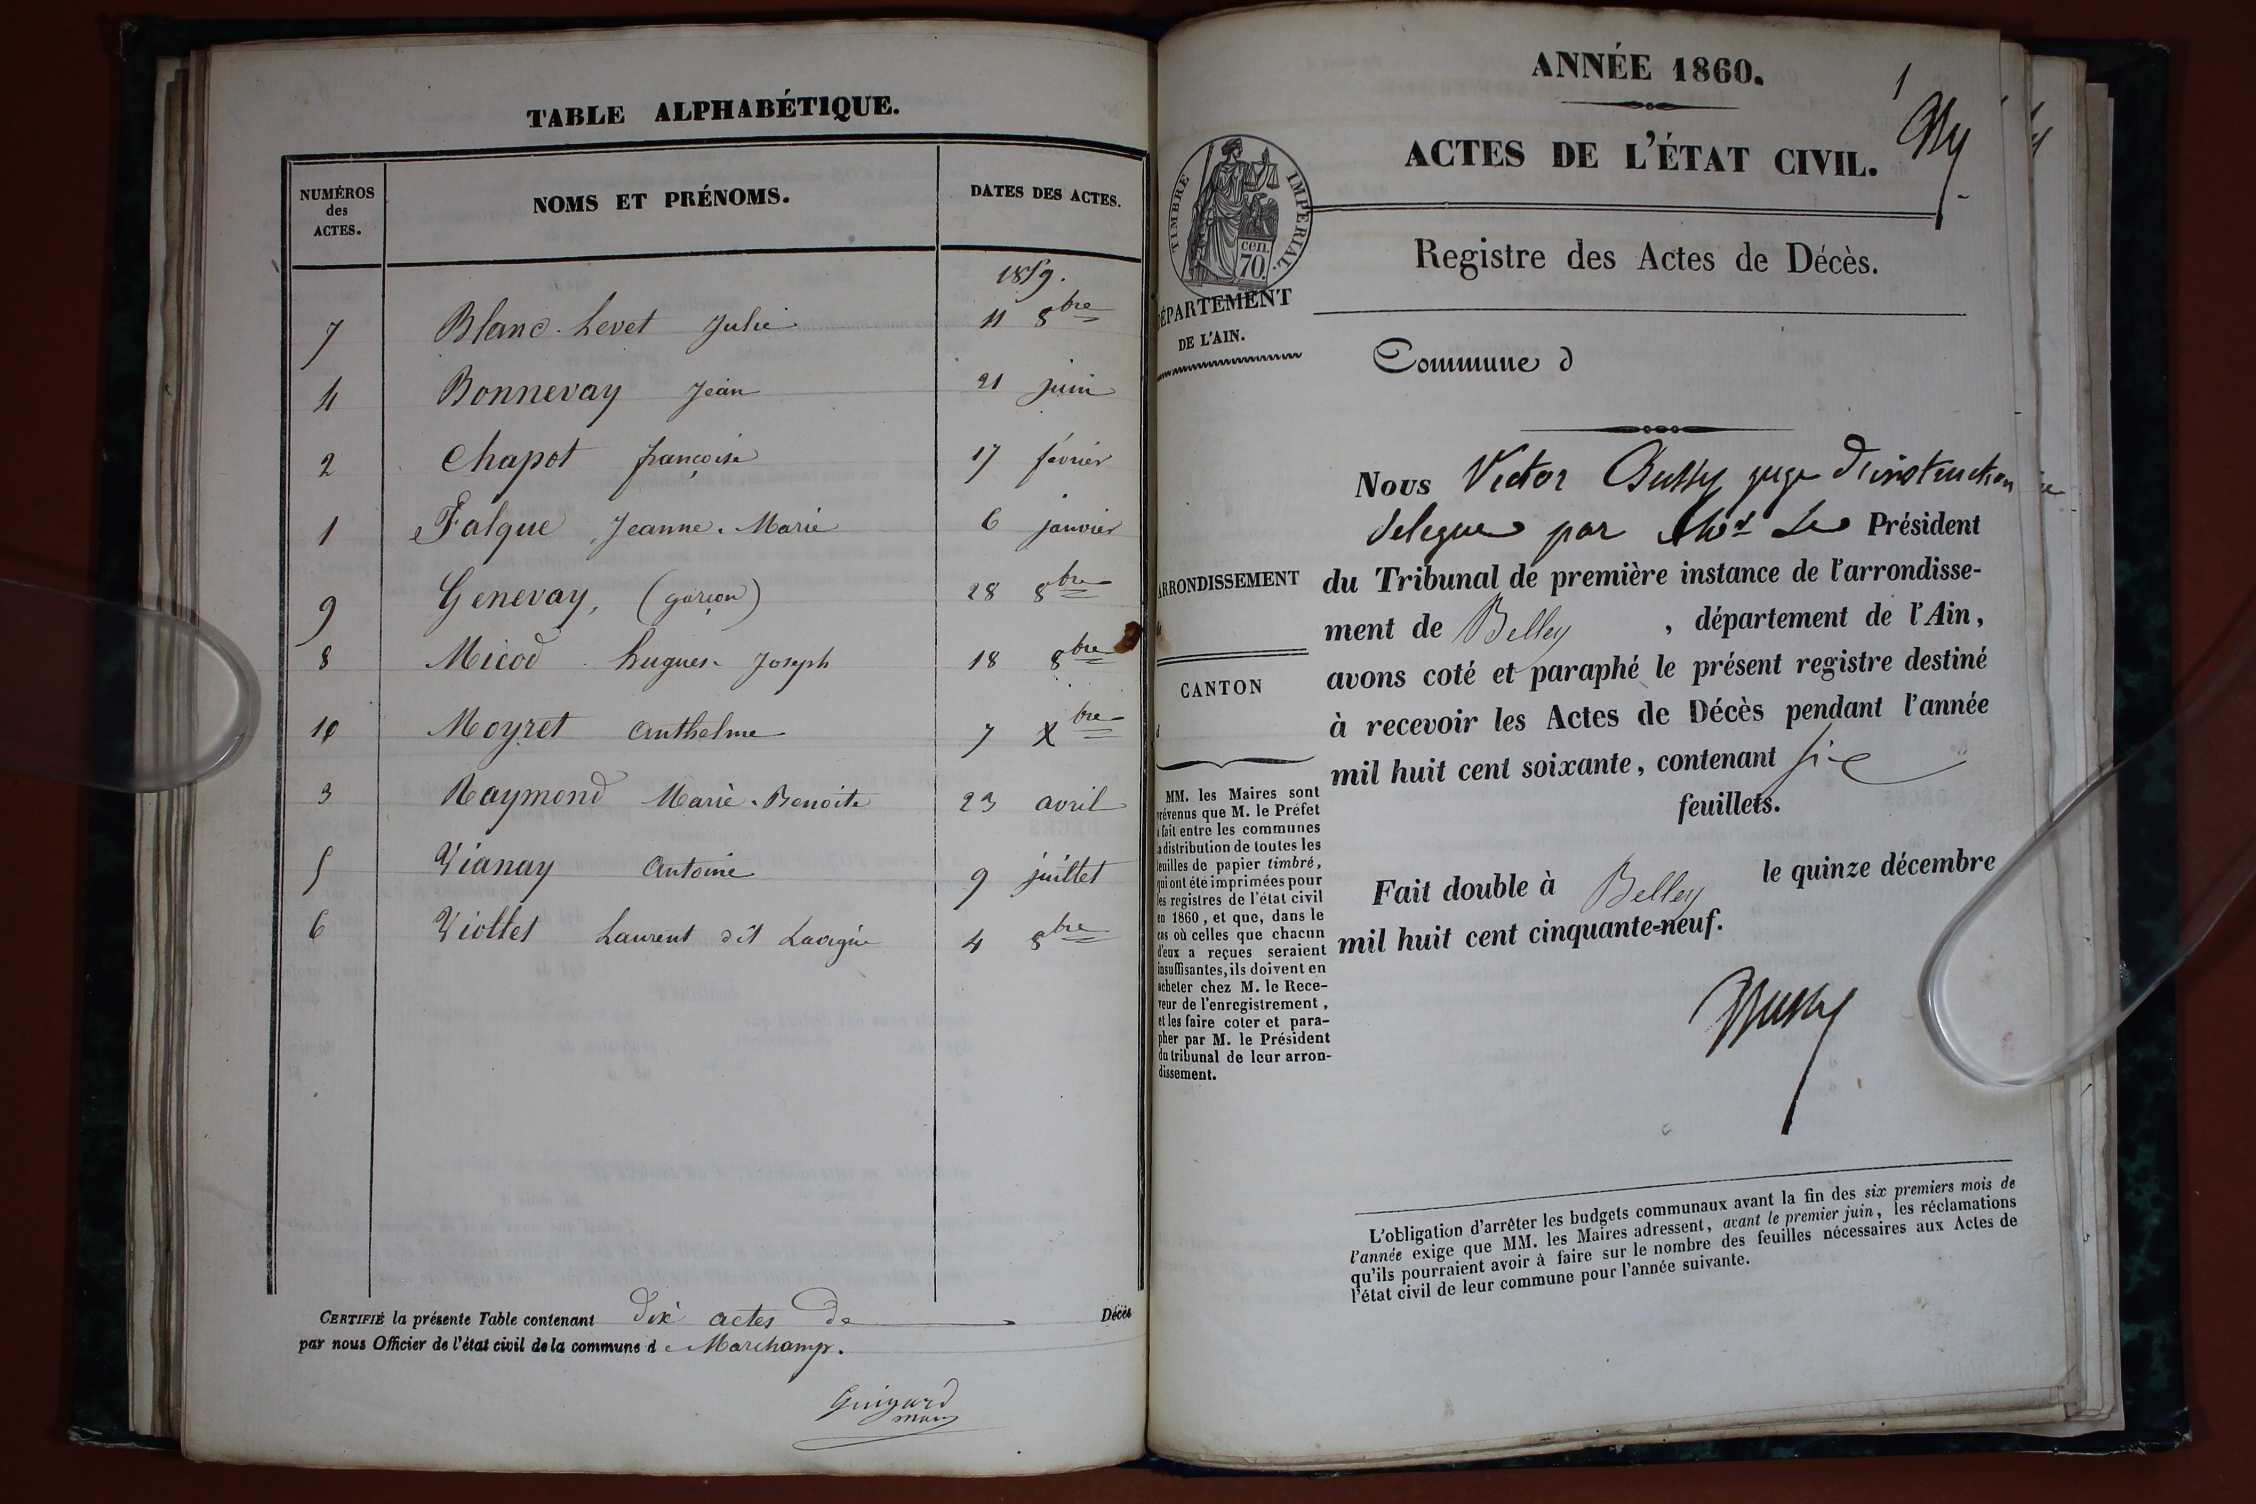 TABLE ALPHABÉTIQUE.
NUMÉROS
des
ACTES.
NOMS ET PRÉNOMS.
DATES DES ACTES.
1859.
7 Blanc-Levet Julie 11 8bre
4 Bonnevay Jean 21 juin
2 Chapot françoise 17 février
1 Falque Jeanne-Marie 6 janvier
9 Genevay, (garçon) 28 8bre
8 Micod hugues-Joseph 18 8bre
10 Moyret Anthelme 7 Xbre
3 Raymond Marie-Benoite 23 avril
5 Vianay Antoine 9 juillet
6 Viollet Laurent dit Lavigne 4 8bre
CERTIFIÉ la présente Table contenant dix actes de Décès
par nous Officier de l'état civil de la commune d Marchamp.
Guigard
maire
ANNÉE 1860.
1
ACTES DE L'ÉTAT CIVIL.
TIMBRE IMPERIAL.
cen.
70.
Registre des Actes de Décès.
DÉPARTEMENT
DE L'AIN.
Commune d
ARRONDISSEMENT
CANTON
d
MM. les Maires sont
prévenus que M. le Préfet
a fait entre les communes
la distribution de toutes les
feuilles de papier timbré,
qui ont été imprimées pour
les registres de l'état civil
en 1860, et que, dans le
cas où celles que chacun
d'eux a reçues seraient
insuffisantes, ils doivent en
acheter chez M. le Rece-
veur de l'enregistrement,
et les faire coter et para-
pher par M. le Président
du tribunal de leur arron-
dissement.
Nous Victor Bussy juge d'instruction
delegue par Mr Le Président
du Tribunal de première instance de l'arrondisse-
ment de Belley, département de l'Ain,
avons coté et paraphé le présent registre destiné
à recevoir les Actes de Décès pendant l'année
mil huit cent soixante, contenant six
feuillets.
Fait double à Belley le quinze décembre
mil huit cent cinquante-neuf.
Bussy
L'obligation d'arrêter les budgets communaux avant la fin des six premiers mois de
l'année exige que MM. les Maires adressent, avant le premier juin, les réclamations
qu'ils pourraient avoir à faire sur le nombre des feuilles nécessaires aux Actes de
l'état civil de leur commune pour l'année suivante.